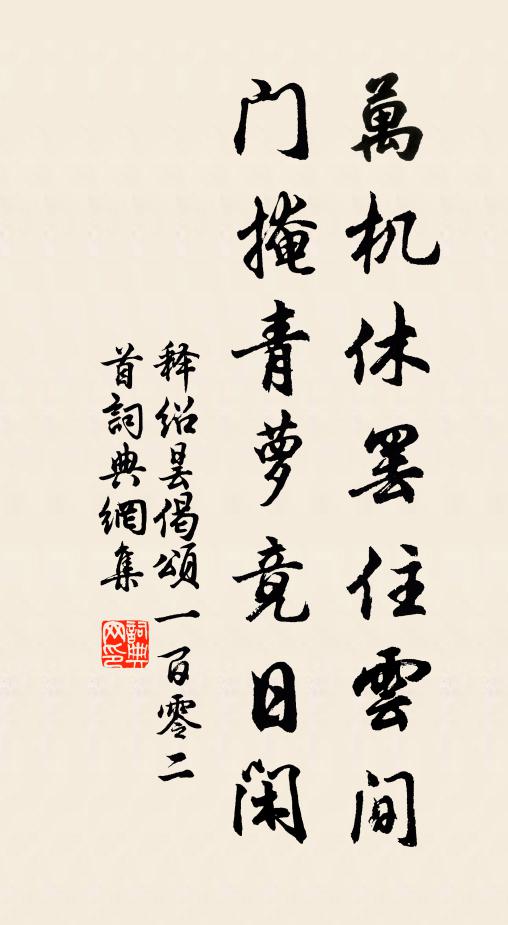 萬机休罢住雲间
门掩青萝竟日闲
释绍昙偈頌一百零二
首詞典網集
詞典網印